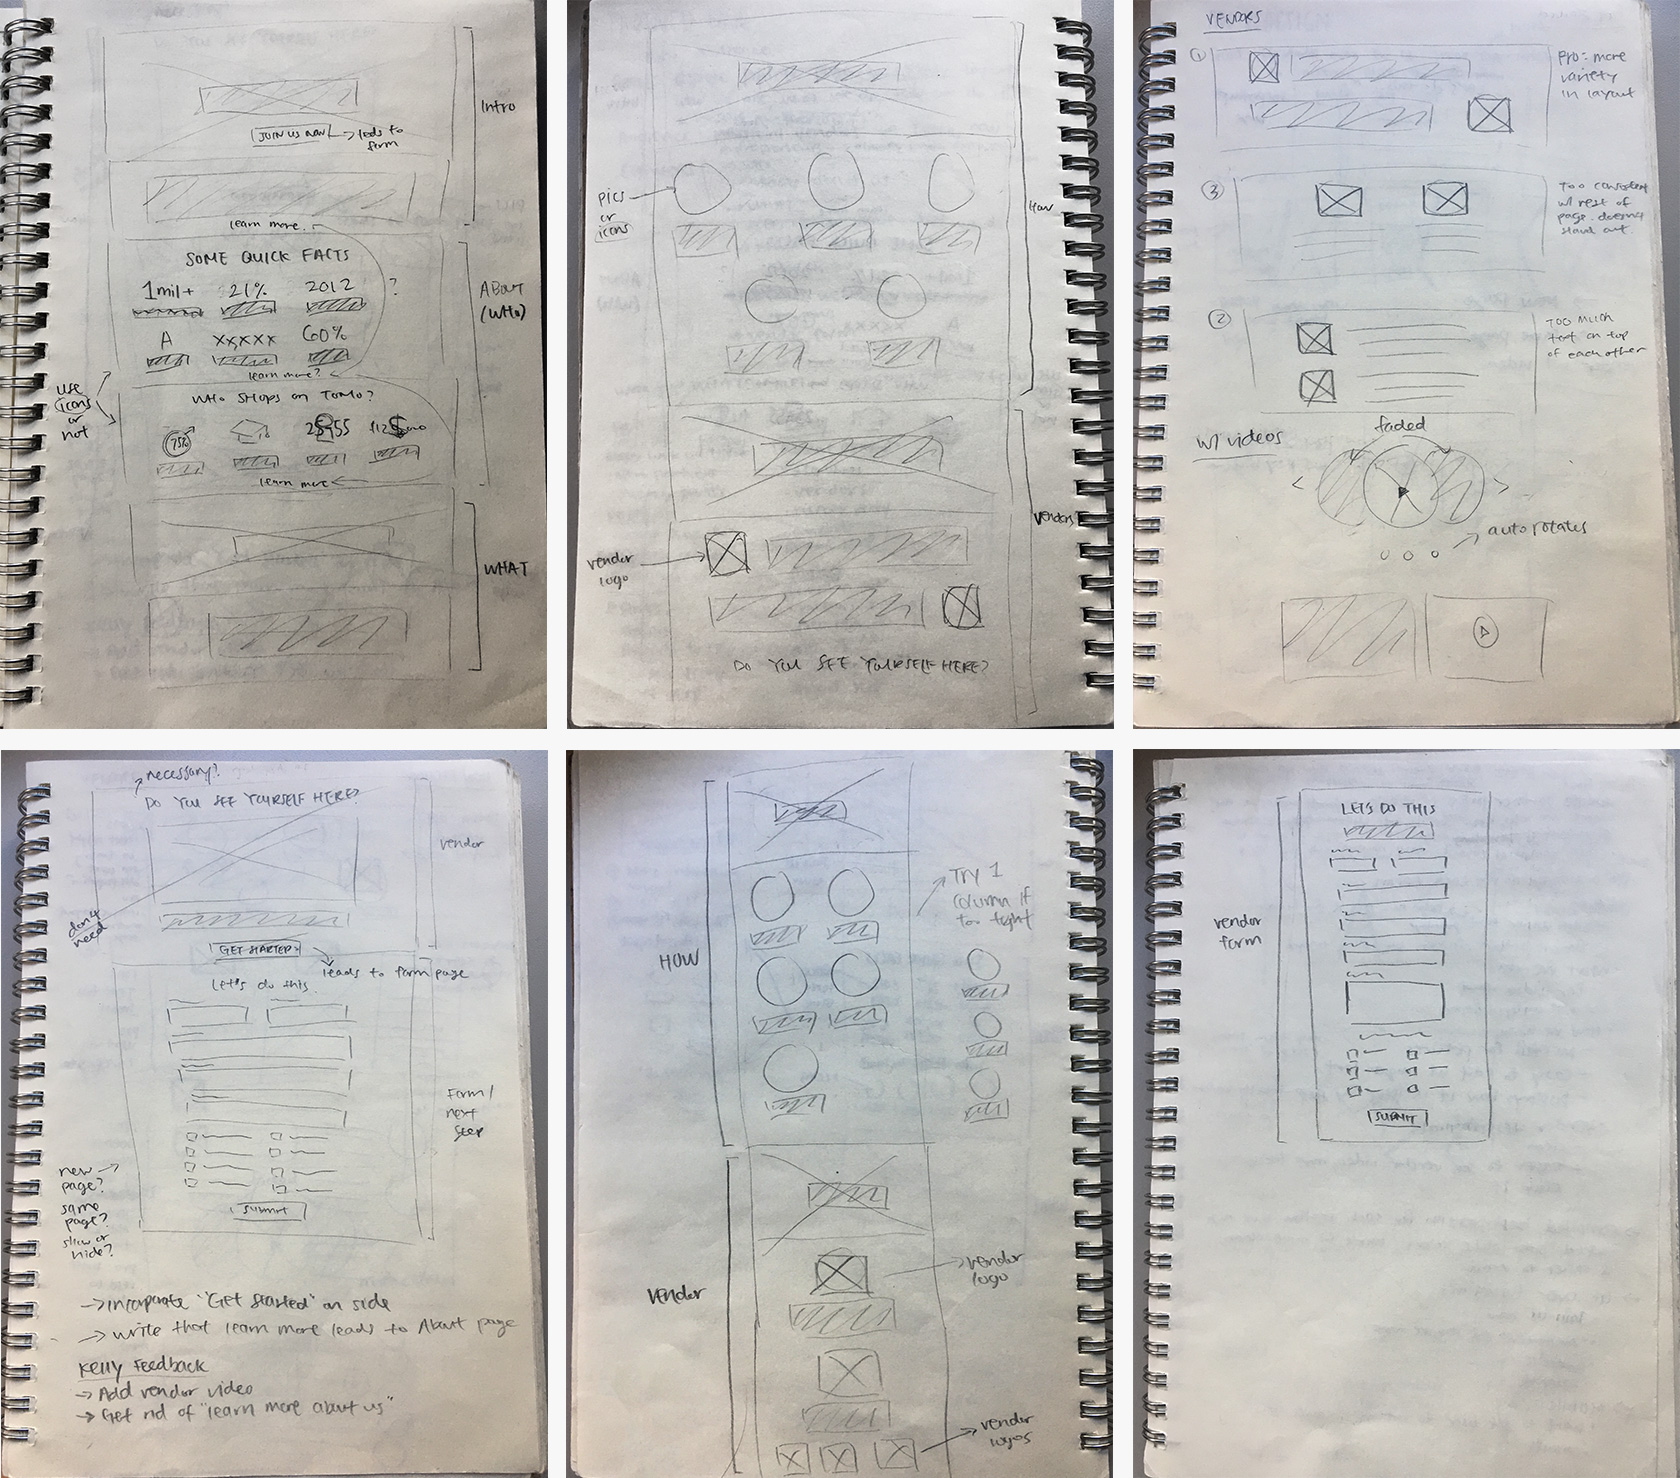 Intro
JOIN US NOW
leads to
form
learn more
SOME QUICK FACTS
1mil+ 21% 2012 ?
A XXXXX 60%
learn more?
ABOUT
(WHO)
use
icons
or
not
WHO SHOPS on TOMO?
75%
learn more
WHAT
pics
or
icons
How
vendors
vendor
logo
DO YOU SEE YOURSELF HERE?
VENDORS
1
Pro: more
variety
in layout
3
Too consistent
w/ rest of
page. doesn't
stand out
2
TOO MUCH
text on top
of each other
w/ videos
faded
< >
auto rotates
necessary?
DO YOU SEE YOURSELF HERE?
vendor
don't
need
GET STARTED
leads to form page
Let's do this
Form/
next
step
new
page?
same
page?
show or
hide?
submit
→ incorporate "Get Started" on side
→ write that learn more leads to About page
Kelly Feedback
→ Add vendor video
→ Get rid of "learn more about us"
HOW
Try 1
column if
too tight
vendor
vendor
logo
vendor
logos
LET'S DO THIS
vendor
form
SUBMIT